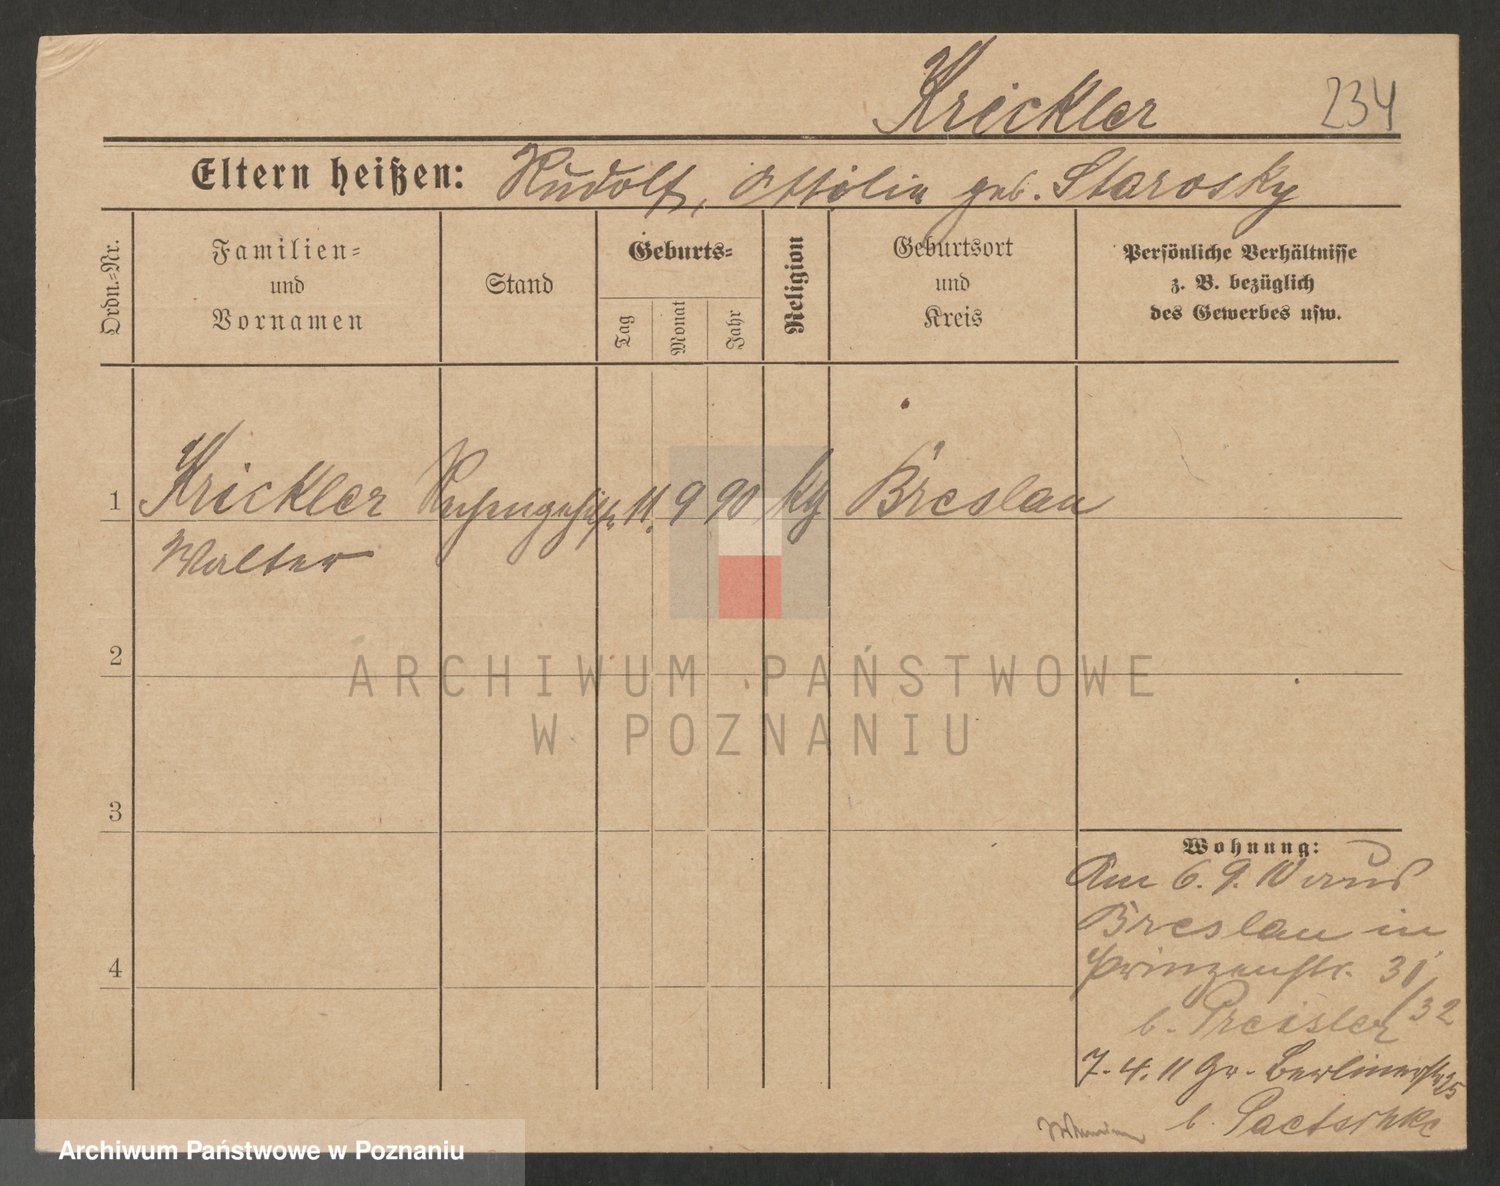 Krickler 234
Eltern heißen: Rudolf, Ottilie geb. Starosky
Ordn.-Nr.
Familien-
und
Vornamen
Stand
Geburts-
Tag
Monat
Jahr
Religion
Geburtsort
und
Kreis
Persönliche Verhältnisse
z. B. bezüglich
des Gewerbes usw.
1 Krickler 11. 9 90 Breslau
Walter
2
3
4
ARCHIWUM PAŃSTWOWE
W POZNANIU
Wohnung:
Am 6. 9. 10 aus
Breslau in
Prinzenstr. 31
/32
b. Preisler
7. 4. 11 Gr. Berlinerstr 25
b. Paetschke
Archiwum Państwowe w Poznaniu